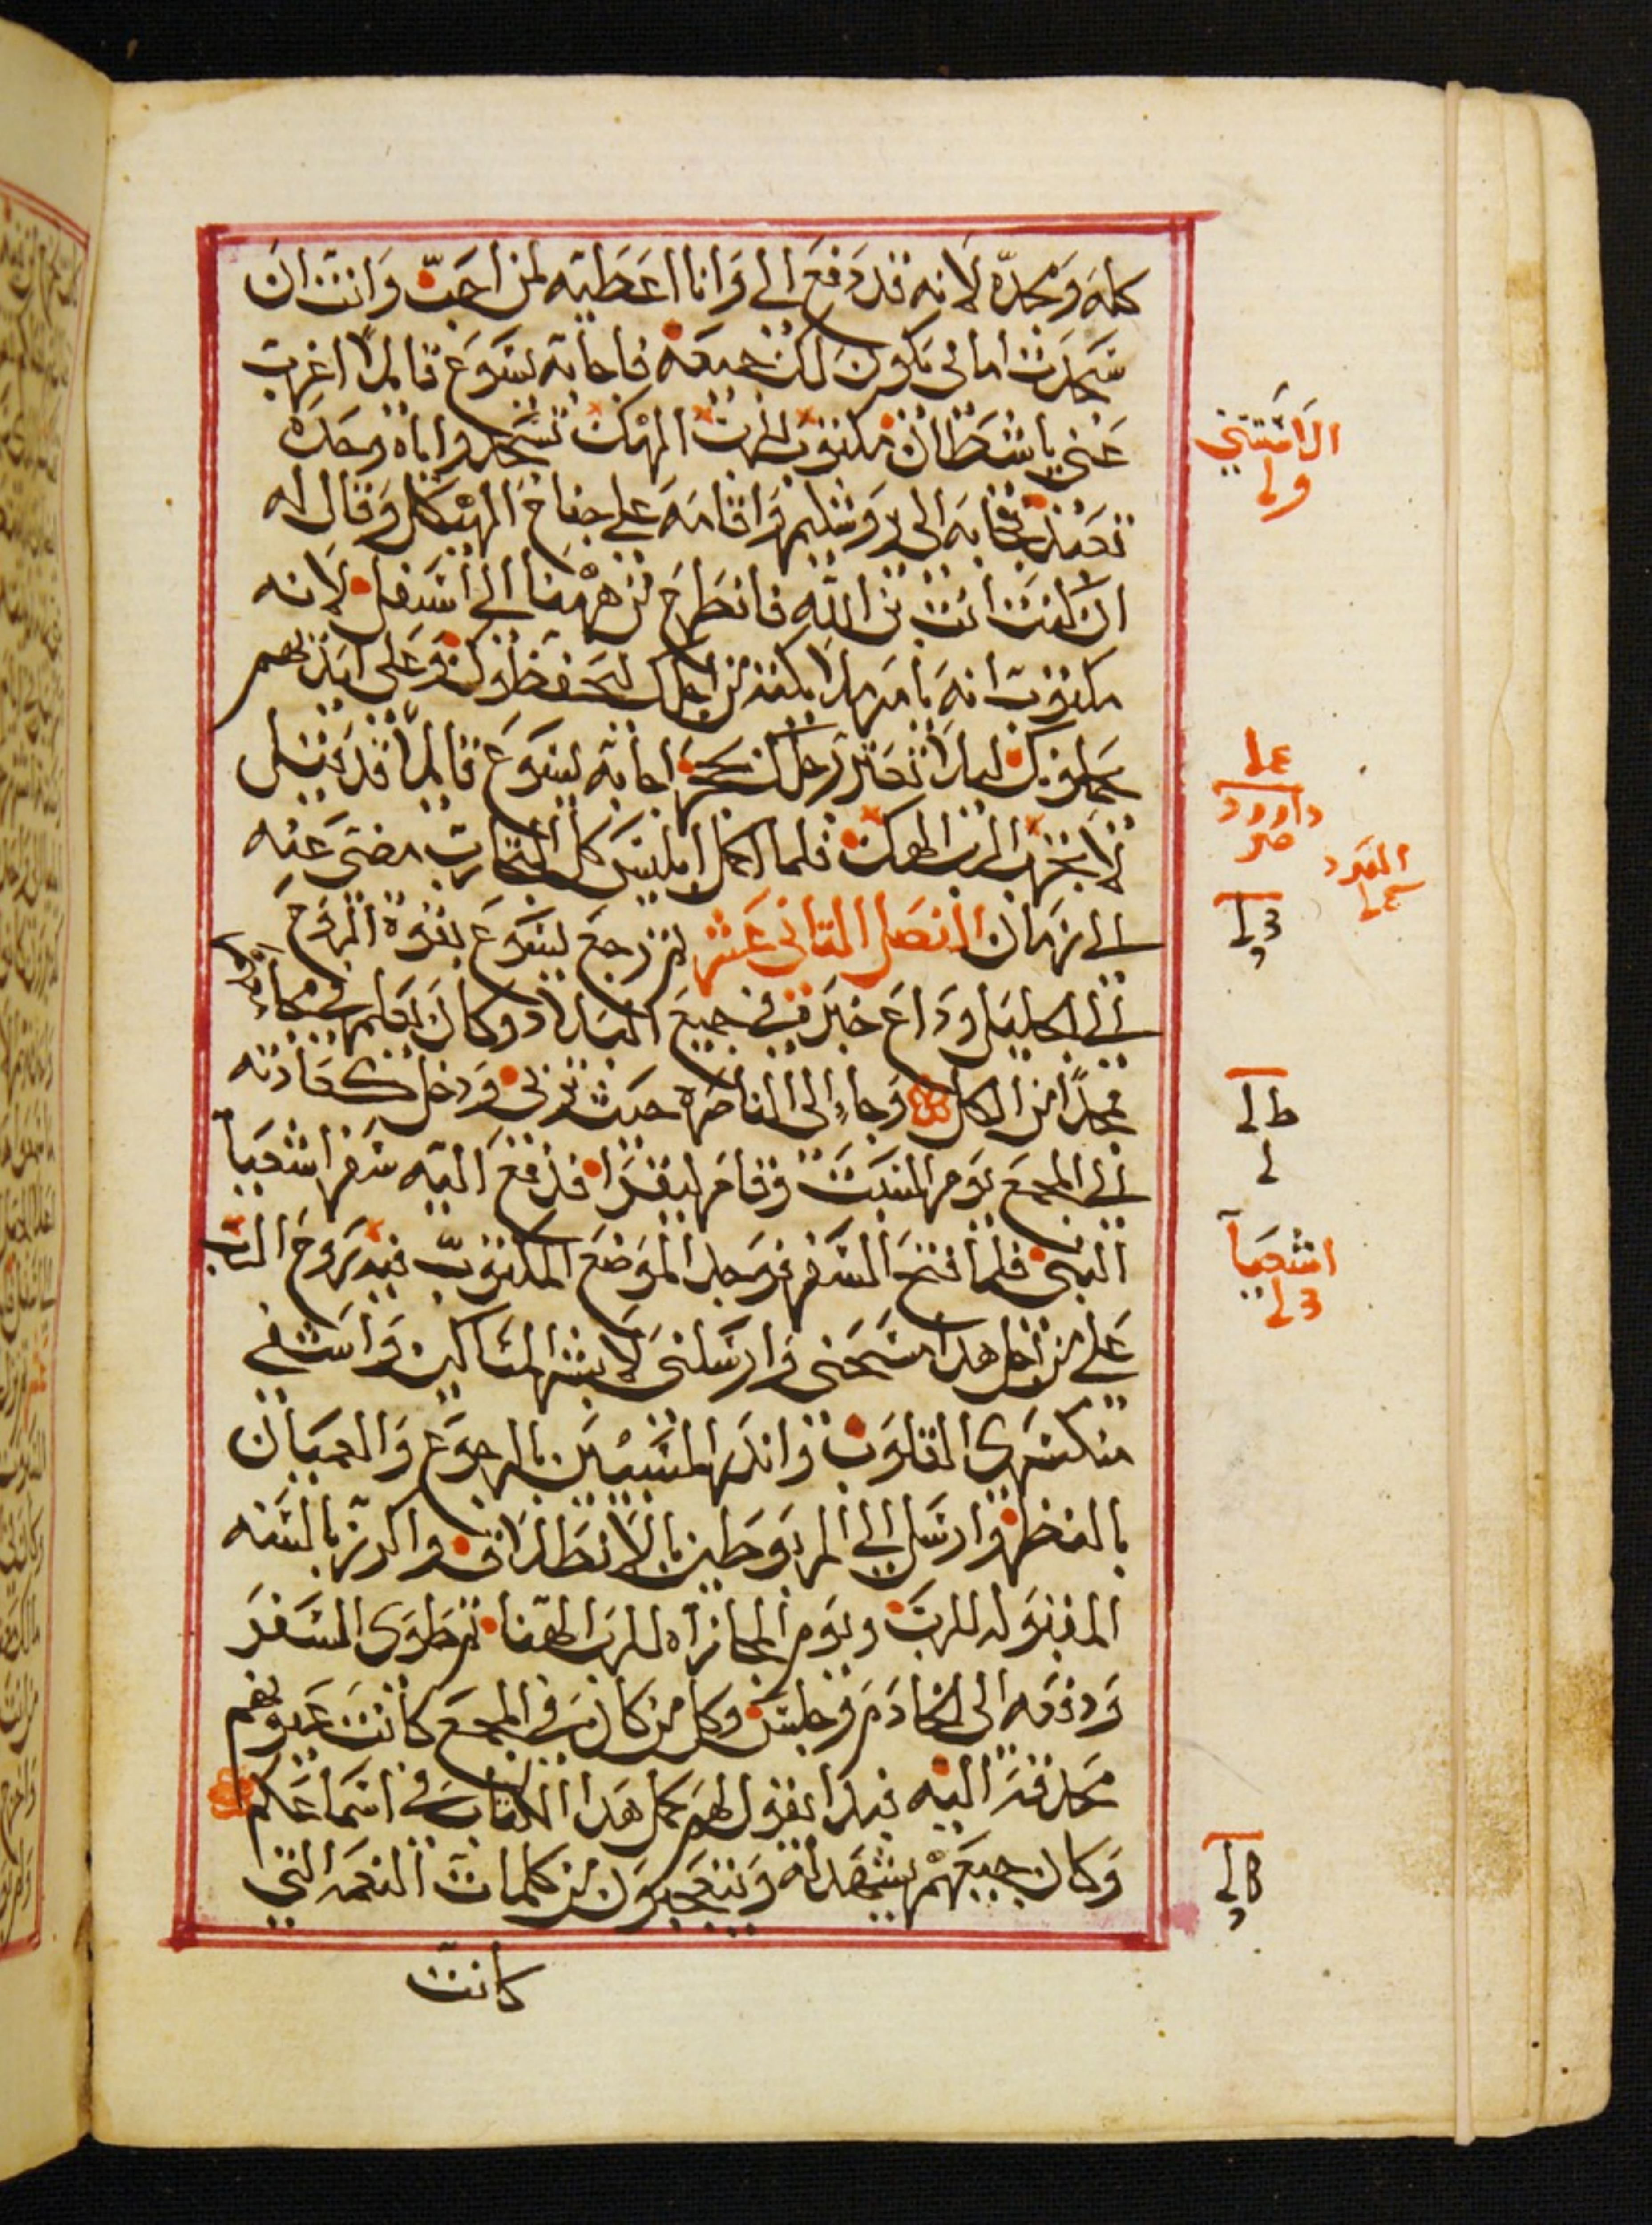 كله ومجده لانه قد دفع الي وانا اعطيه لمن احب وانت ان
سجدت امامي يكون لك جميعه فاجابه يسوع قايلا اغرب
عني ياشيطان مكتوب للرب الهك تسجد واياه وحده
تعبد فجابه الى يروشليم واقامه على جناح الهيكل وقال له
ان كنت انت بن الله فانطرح من ههنا الى اسفل لانه
مكتوب انه يامر ملايكته من اجلك ليحفظوك وعلى ايديهم
يحملونك ليلا تعتر رجلك بحجر اجابه يسوع قايلا قد قيل
لا تجرب الرب الهك فلما اكمل ابليس كل التجارب مضى عنه
الى زمان الفصل التاني عشر ثم رجع يسوع بقوة الروح
الى الجليل وداع خبره في جميع البلاد وكان يعلم في مجامعهم
ممجدا من الكل وجاء الى الناصرة حيث تربى ودخل كعادته
الى المجمع يوم السبت وقام ليقرا فدفع اليه سفر اشعيا
النبي فلما فتح السفر وجد الموضع المكتوب فيه روح الرب
علي من اجل هدا مسحني وارسلني لابشر المساكين واشفي
منكسري القلوب وانذر المسبيين بالرجوع والعميان
بالنظر وارسل الى المربوطين بالانطلاق واكرز بالسنه
المقبوله للرب ويوم المجازاه للرب الهنا ثم طوى السفر
ودفعه الى الخادم وجلس وكل من كان في المجمع كانت عيونهم
محدقه اليه فبدا يقول لهم كمل هدا الكتاب في اسماعكم
وكان جميعهم يشهد له ويتعجبون من كلمات النعمه التي
كانت
الاستتني
داوود
العدد
اشعيا